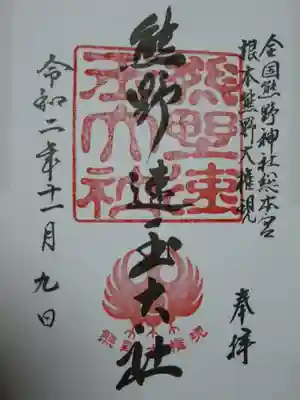 全国熊野神社総本宮
根本熊野大権現
奉拝
熊野速玉大社
令和二年十一月九日
熊野速玉大社
熊野大権現